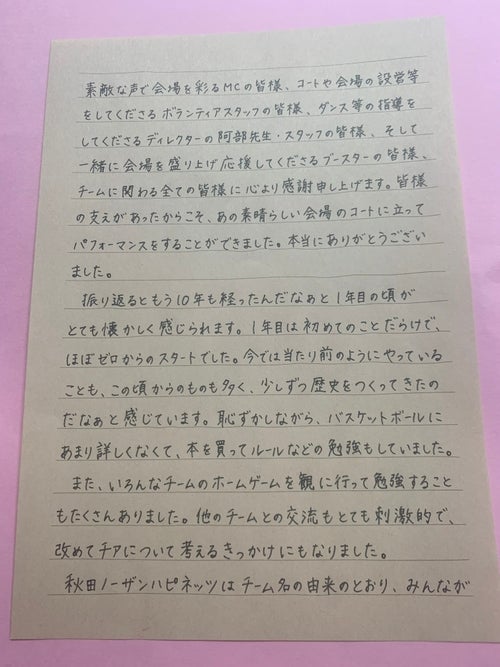 素敵な声で会場を彩るMCの皆様、コートや会場の設営等
をしてくださるボランティアスタッフの皆様、ダンス等の指導を
してくださるディレクターの阿部先生・スタッフの皆様、そして
一緒に会場を盛り上げ応援してくださるブースターの皆様、
チームに関わる全ての皆様に心より感謝申し上げます。皆様
の支えがあったからこそ、あの素晴らしい会場のコートに立って
パフォーマンスをすることができました。本当にありがとうござい
ました。
振り返るともう10年も経ったんだなぁと1年目の頃が
とても懐かしく感じられます。1年目は初めてのことだらけで、
ほぼゼロからのスタートでした。今では当たり前のようにやっている
ことも、この頃からのものも多く、少しずつ歴史をつくってきたの
だなぁと感じています。恥ずかしながら、バスケットボールに
あまり詳しくなくて、本を買ってルールなどの勉強もしていました。
また、いろんなチームのホームゲームを観に行って勉強すること
もたくさんありました。他のチームとの交流もとても刺激的で、
改めてチアについて考えるきっかけにもなりました。
秋田ノーザンハピネッツはチーム名の由来のとおり、みんなが